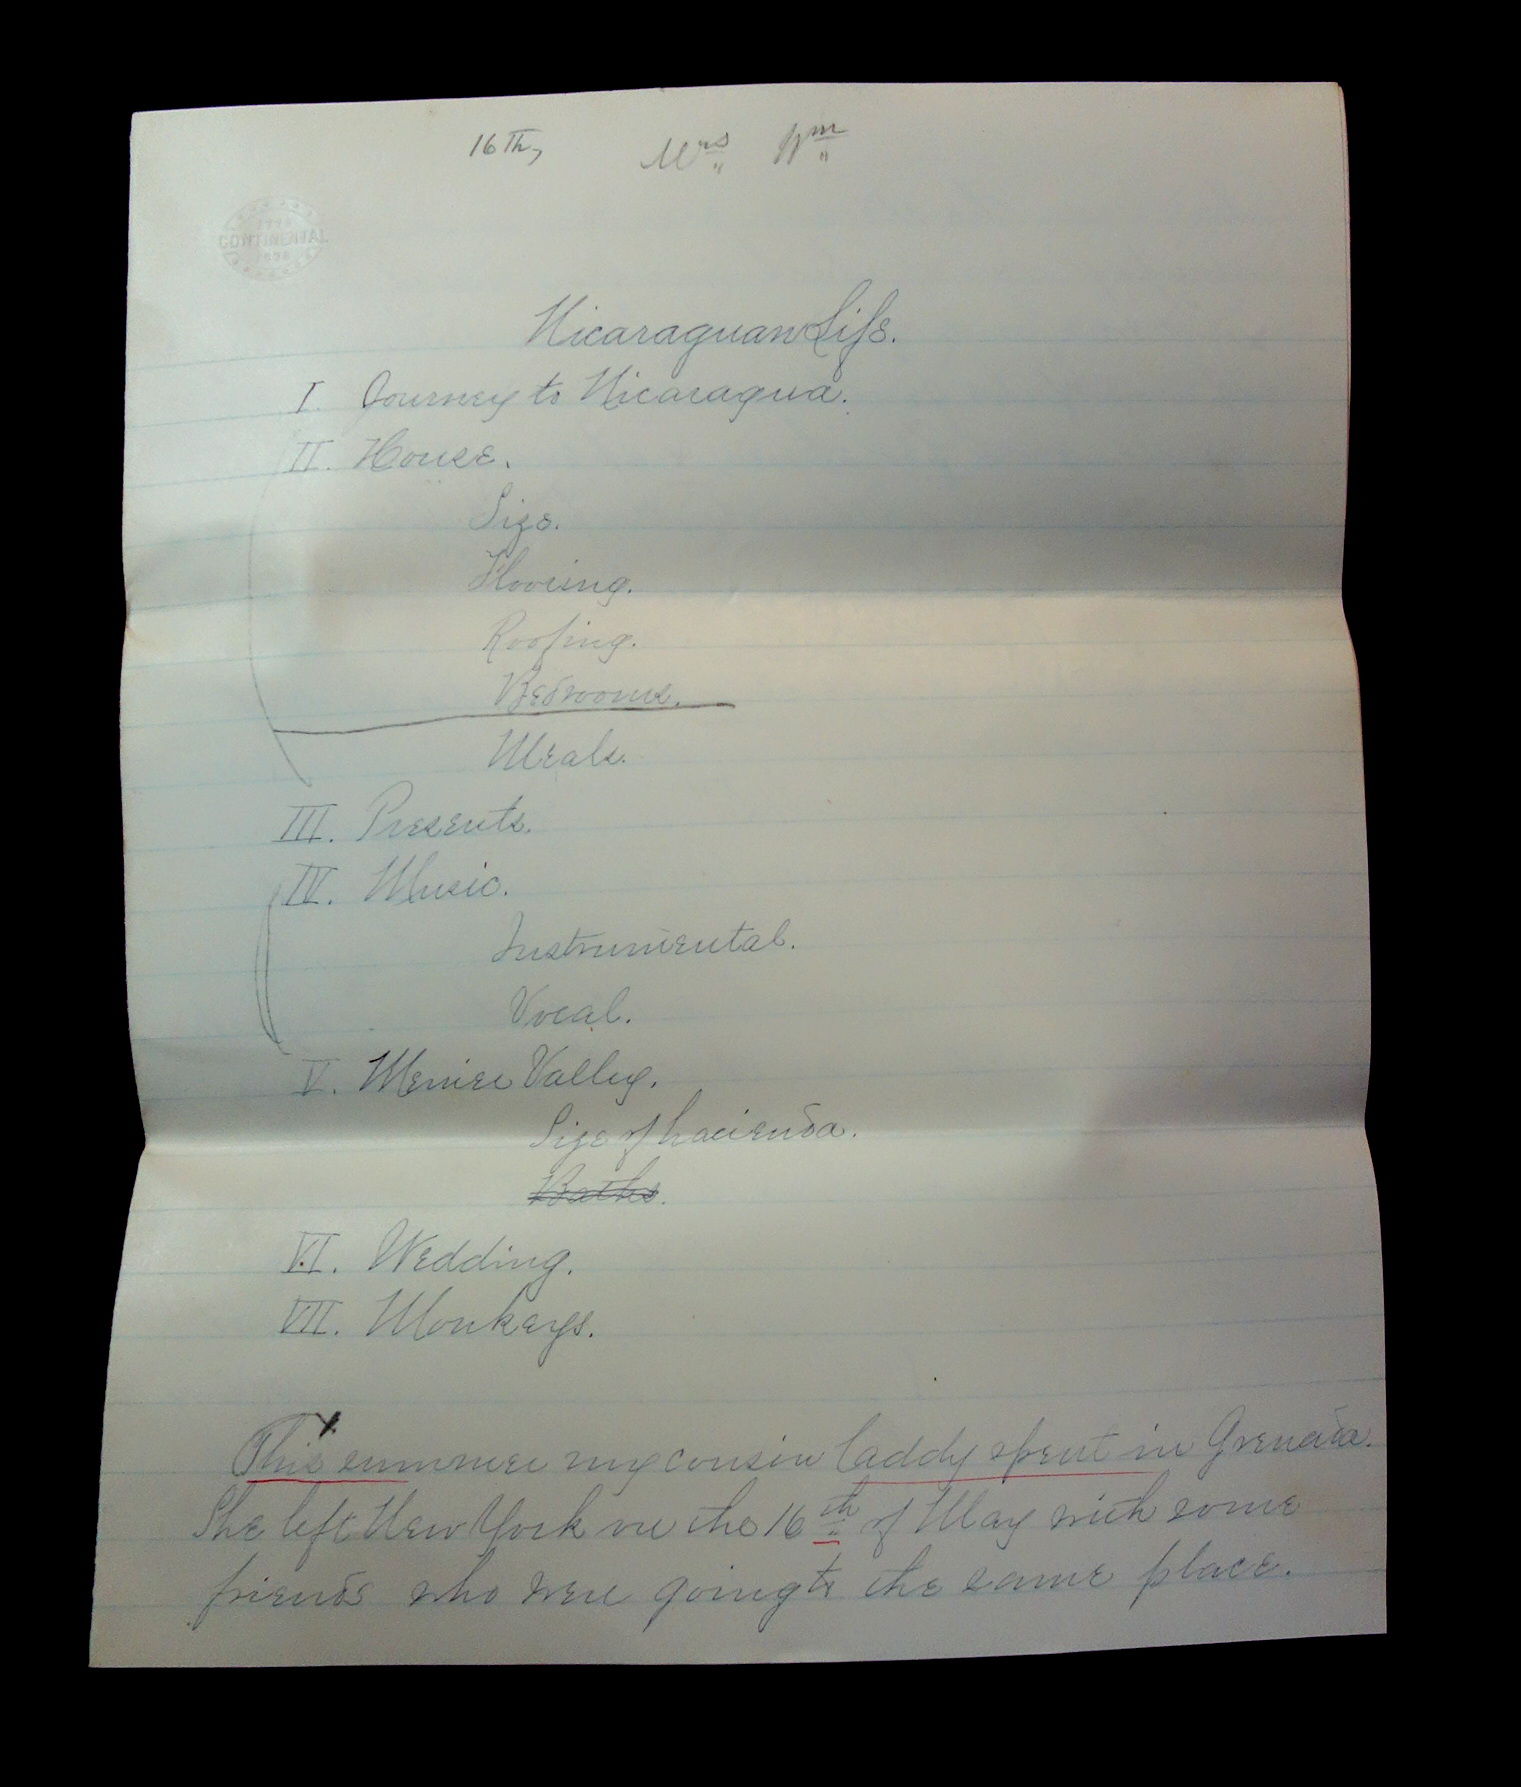 16 Th, Mrs Wm
1776
CONTINENTAL
1876
Nicaraguan Life.
I. Journey to Nicaragua.
II. House.
Size.
Flooring.
Roofing.
Bedrooms.
Meals.
III. Presents.
IV. Music.
Instrumental.
Vocal.
V. Menier Valley.
Size of hacienda.
Baths.
VI. Wedding.
VII. Monkeys.
This summer my cousin Caddy spent in Grenada.
She left New York on the 16th of May with some
friends who were going to the same place.